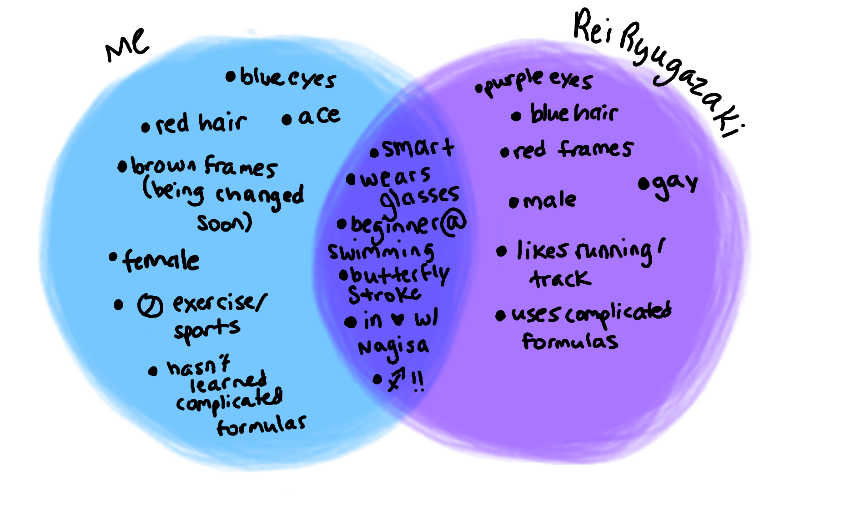 Me
• blue eyes
• red hair
• ace
• brown frames
(being changed
soon)
• female
• ∅ exercise/
sports
• hasn't
learned
complicated
formulas
• smart
• wears
glasses
• beginner @
swimming
• butterfly
stroke
• in ♥ w/
Nagisa
• ♐ !!
Rei Ryugazaki
• purple eyes
• blue hair
• red frames
• gay
• male
• likes running/
track
• uses complicated
formulas